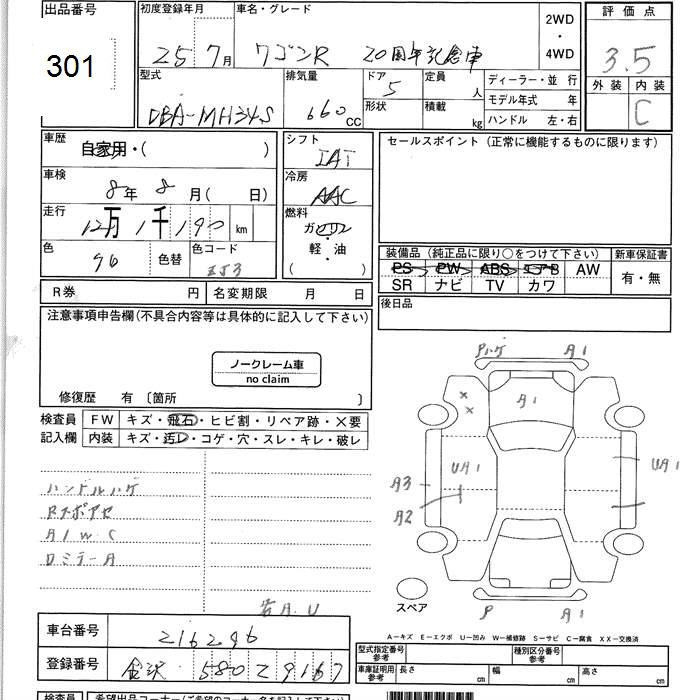 出品番号
301
初度登録年月
25 7月
車名・グレード
ワゴンR 20周年記念車
2WD
・
4WD
評価点
3.5
外装 内装
C
型式
DBA-MH34S
排気量
660 CC
ドア
5
形状
定員
人
積載
kg
ディーラー・並行
モデル年式 年
ハンドル 左・右
車歴
自家用・( )
車検
8年 8月( 日)
走行
12万1千190 km
色
96
色替
色コード
ZJ3
シフト
IAT
冷房
AAC
燃料
ガソリン
・
軽・油
( )
セールスポイント(正常に機能するものに限ります)
装備品(純正品に限り○をつけて下さい)
新車保証書
PS PW ABS エアB AW
SR ナビ TV カワ
有・無
R券 円
名変期限 月 日
後日品
注意事項申告欄(不具合内容等は具体的に記入して下さい)
ノークレーム車
no claim
修復歴 有 〔箇所 〕
検査員
記入欄
FW キズ・飛石・ヒビ割・リペア跡・×要
内装 キズ・汚レ・コゲ・穴・スレ・キレ・破レ
ハンドルハゲ
Rスポアセ
A/W C
ロミラーA
若A.U
Pハゲ A1
A1
UA1
UA1
A3
A2
スペア
P A1
A-キズ E-エクボ U-凹み W-補修跡 S-サビ C-腐食 XX-交換済
車台番号
216296
登録番号
金沢 580 て 9167
型式指定番号
参考
種別区分番号
参考
車庫証明用
参考
長さ cm
幅 cm
高さ cm
検査員
希望出品コーナー(ご希望のコーナー名を記入下さい)